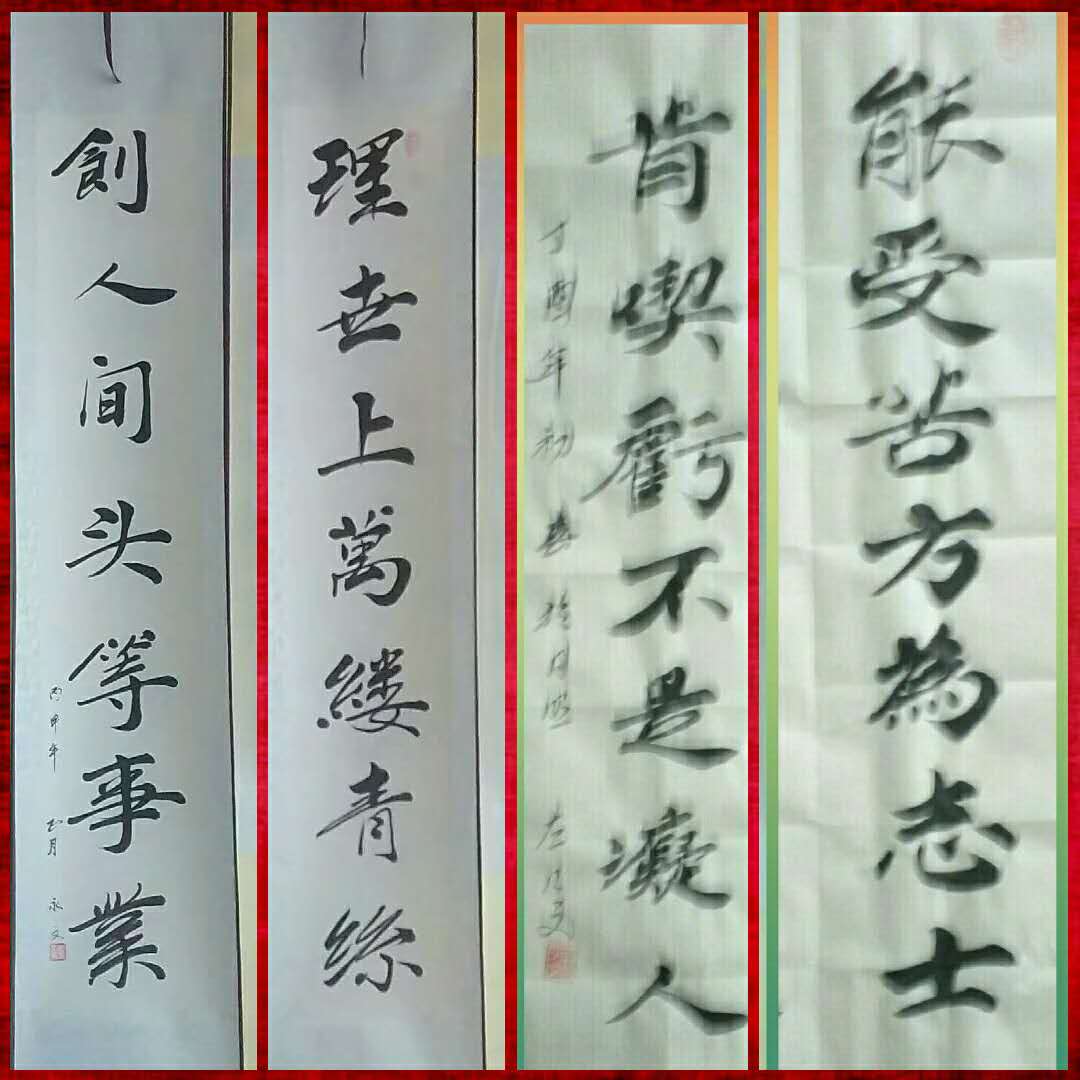 能受苦方為志士
肯喫虧不是癡人
丁酉年初 左永文
理世上萬縷青絲
創人间头等事業
丙申年 正月 永文